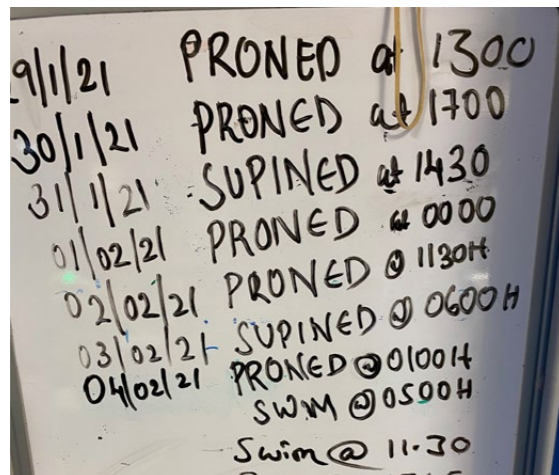 9/1/21 PRONED at 1300
30/1/21 PRONED at 1700
31/1/21 SUPINED at 1430
01/02/21 PRONED at 0000
02/02/21 PRONED @ 1130H
03/02/21 SUPINED @ 0600H
04/02/21 PRONED @ 0100H
SWIM @ 0500H
Swim @ 11.30